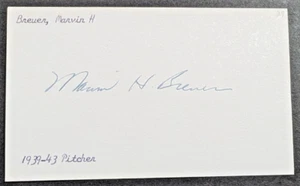 Breuer, Marvin H
Marvin H Breuer
1939-43 Pitcher